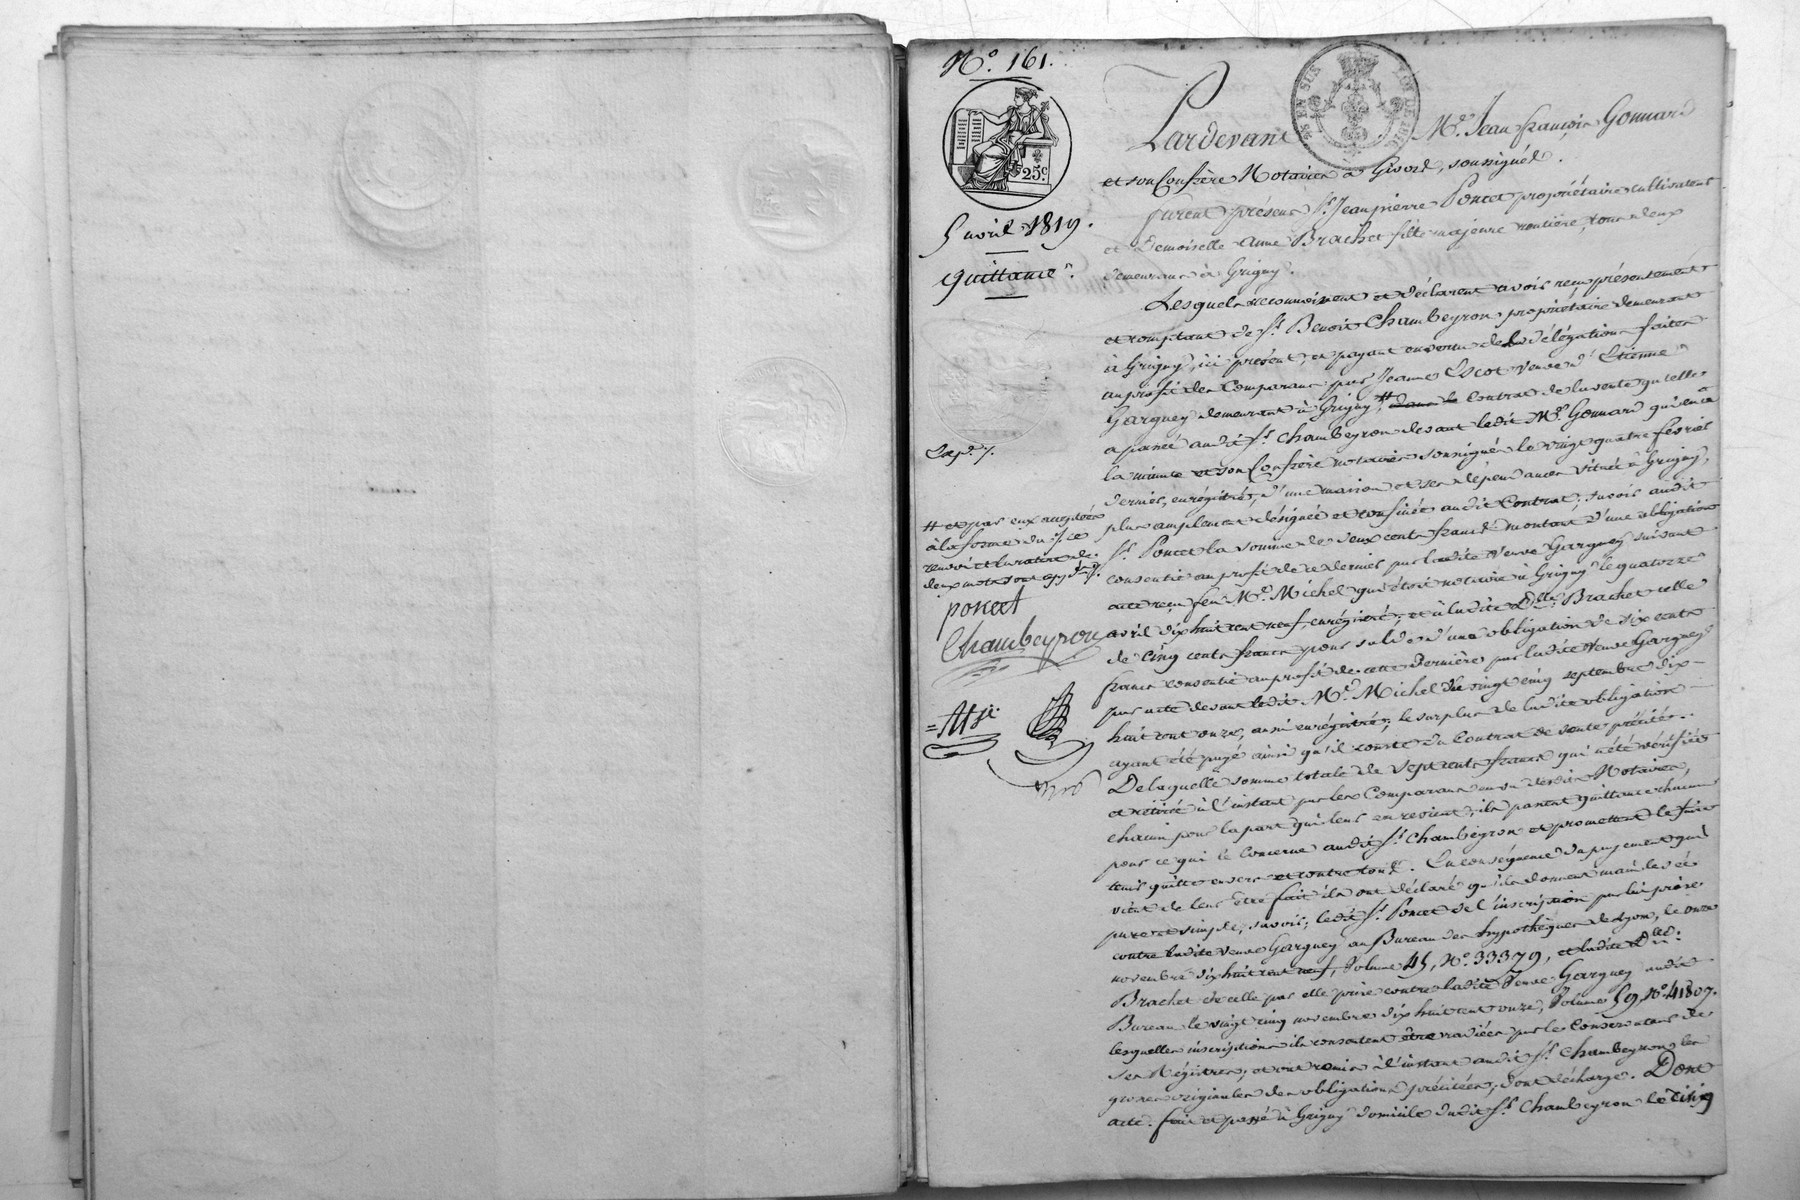 N.º 161.
25 EN SUS
LOI DE 1816
25c
5 avril 1819.
Quittance.
Pardevant M.e Jean françois Gonnard
et son Confrère Notaires à Givord, soussignés.
furent présens S.r Jean pierre Poncet propriétaire cultivateur
et Demoiselle Anne Brachet fille majeure rentière, tous deux
demeurans à Grigny.
Lesquels reconnoissent et déclarent avoir reçu présentement
et comptant de S.r Benoit Chambeyron propriétaire demeurant
à Grigny, ici présent, et payant en vertu de la délégation faite
au profit des Comparans par Jeanne Escot veuve d'Etienne
Garguey demeurant à Grigny, # dans le Contrat de la vente qu'elle
a passé audit S.r Chambeyron devant ledit M.e Gonnard qui en a
la minute et son Confrère notaires soussignés le vingt quatre février
dernier, enrégistré, d'une maison et ses dépendances située à Grigny,
plus amplement désignée et confinée audit Contrat; savoir audit
S.r Poncet la somme de deux cents francs montant d'une obligation
consentie au profit de ce dernier par ladite Veuve Garguey suivant
acte reçu feu M.e Michel qui étoit notaire à Grigny le quatorze
avril dix huit cent neuf, enrégistré; et à ladite D.lle Brachet celle
de Cinq cents francs pour solde d'une obligation de six cents
francs consentie au profit de cette dernière par ladite Veuve Garguey
par acte devant ledit M.e Michel le vingt cinq septembre dix-
huit cent onze, aussi enrégistré; le surplus de ladite obligation
ayant été payé ainsi qu'il conste du Contrat de vente précité.
De laquelle somme totale de Sept cents francs qui a été vérifiée
et retirée à l'instant par les Comparans au vu desdits Notaires,
chacun pour la part qui leur en revient, ils passent quittance chacun
pour ce qui le Concerne audit S.r Chambeyron et promettent le faire
tenir quitte envers et contre tous. En conséquence du payement qui
vient de leur être fait ils ont déclaré qu'ils donnent main levée
pure et simple; savoir, ledit S.r Poncet de l'inscription par lui prise
contre ladite veuve Garguey au Bureau des hypothèques de Lyon, le onze
novembre dix huit cent neuf, Volume 45, N.º 33379, et ladite D.lle
Brachet de celle par elle prise contre ladite Veuve Garguey audit
Bureau le vingt cinq novembre dix huit cent onze, Volume 59, N.º 41807.
lesquelles inscriptions ils consentent être radiées par le Conservateur de
ses Régistres; et ont remis à l'instant audit S.r Chambeyron les
grosses originales des obligations précitées; dont décharge. Dont
acte. fait et passé à Grigny domicile dudit S.r Chambeyron le cinq
Exp.é
# et par eux acceptée
à la forme du
renvoi et la rature de
deux mots sont app.
poncet
Chambeyron